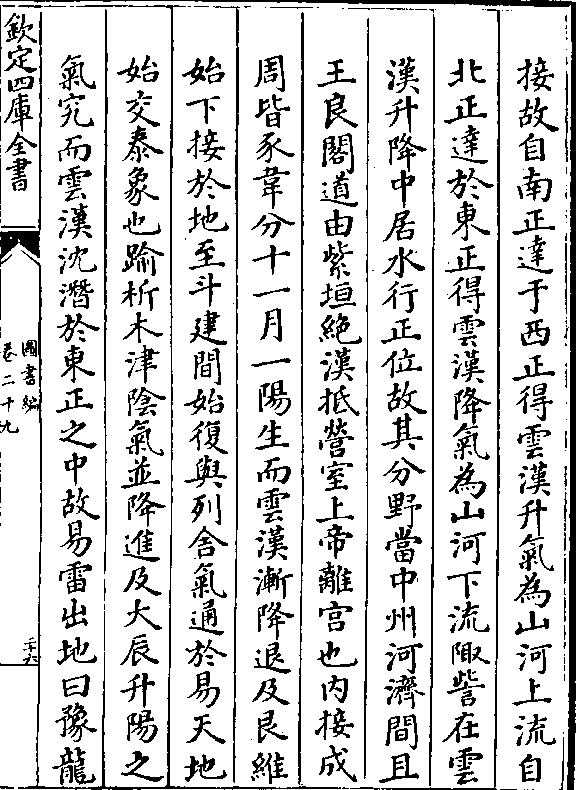 接故自南正達于西正得雲漢升氣為山河上流自
北正達於東正得雲漢降氣為山河下流陬訾在雲
漢升降中居水行正位故其分野當中州河濟間且
王良閣道由紫垣絶漢抵營室上帝離宫也内接成
周皆豕韋分十一月一陽生而雲漢漸降退及艮維
始下接於地至斗建間始復與列舍氣通於易天地
始交泰象也踰析木津隂氣並降進及大辰升陽之
氣究而雲漢沈潛於東正之中故易雷出地曰豫龍
欽定四庫全書
圖書編
卷二十九
三十六